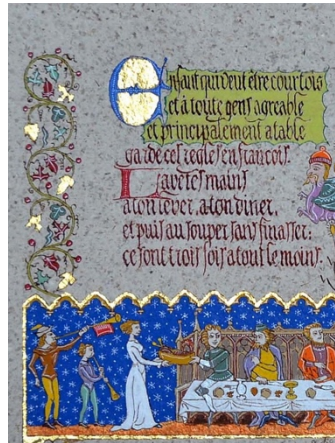 Enfant qui veut être courtois
et à toute gens agreable
et principalement a table
garde ces regles en francois.
Lave tes mains
a ton lever, a ton diner,
et puis au souper sans finasser:
ce sont trois fois a tout le moins.